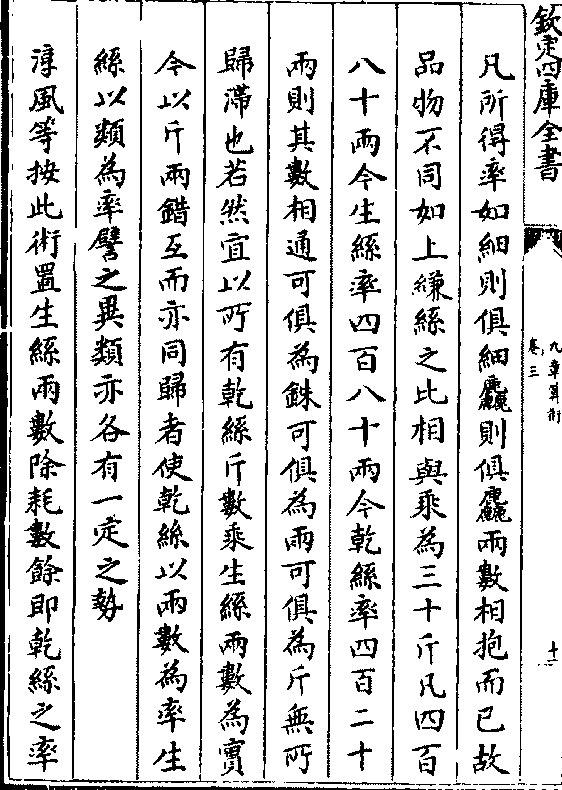 欽定四庫全書
九章算術
卷三
十二
凡所得率如細則俱細麤則俱麤兩數相抱而已故
品物不同如上縑絲之比相與乘為三十斤凡四百
八十兩今生絲率四百八十兩今乾絲率四百二十
兩則其數相通可俱為銖可俱為兩可俱為斤無所
歸滯也若然宜以所有乾絲斤數乘生絲兩數為實
今以斤兩錯互而亦同歸者使乾絲以兩數為率生
絲以類為率譬之異類亦各有一定之勢
淳風等按此術置生絲兩數除耗數餘即乾絲之率